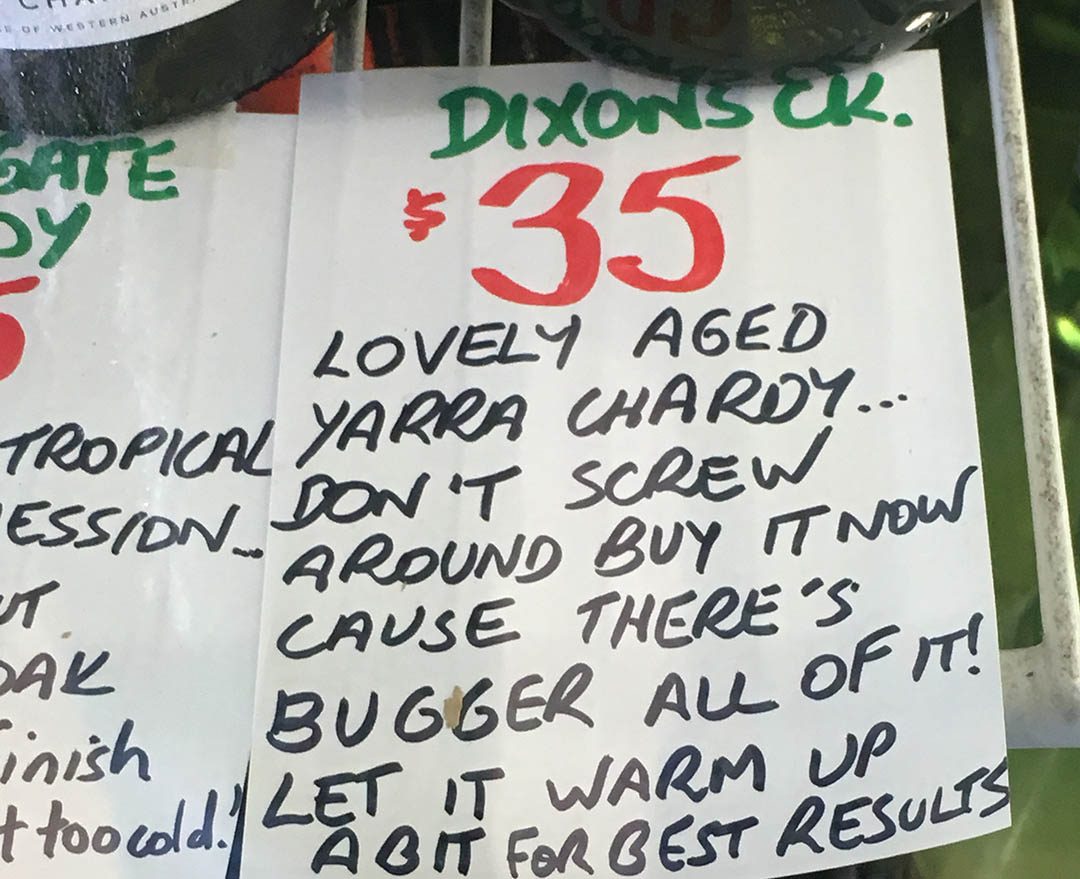 OF WESTERN
DIXONS CK.
$35
LOVELY AGED
YARRA CHARDY...
DON'T SCREW
AROUND BUY IT NOW
CAUSE THERE'S
BUGGER ALL OF IT!
LET IT WARM UP
A BIT FOR BEST RESULTS
GATE
DY
5
TROPICAL
ESSION...
UT
OAK
inish
t too cold.!